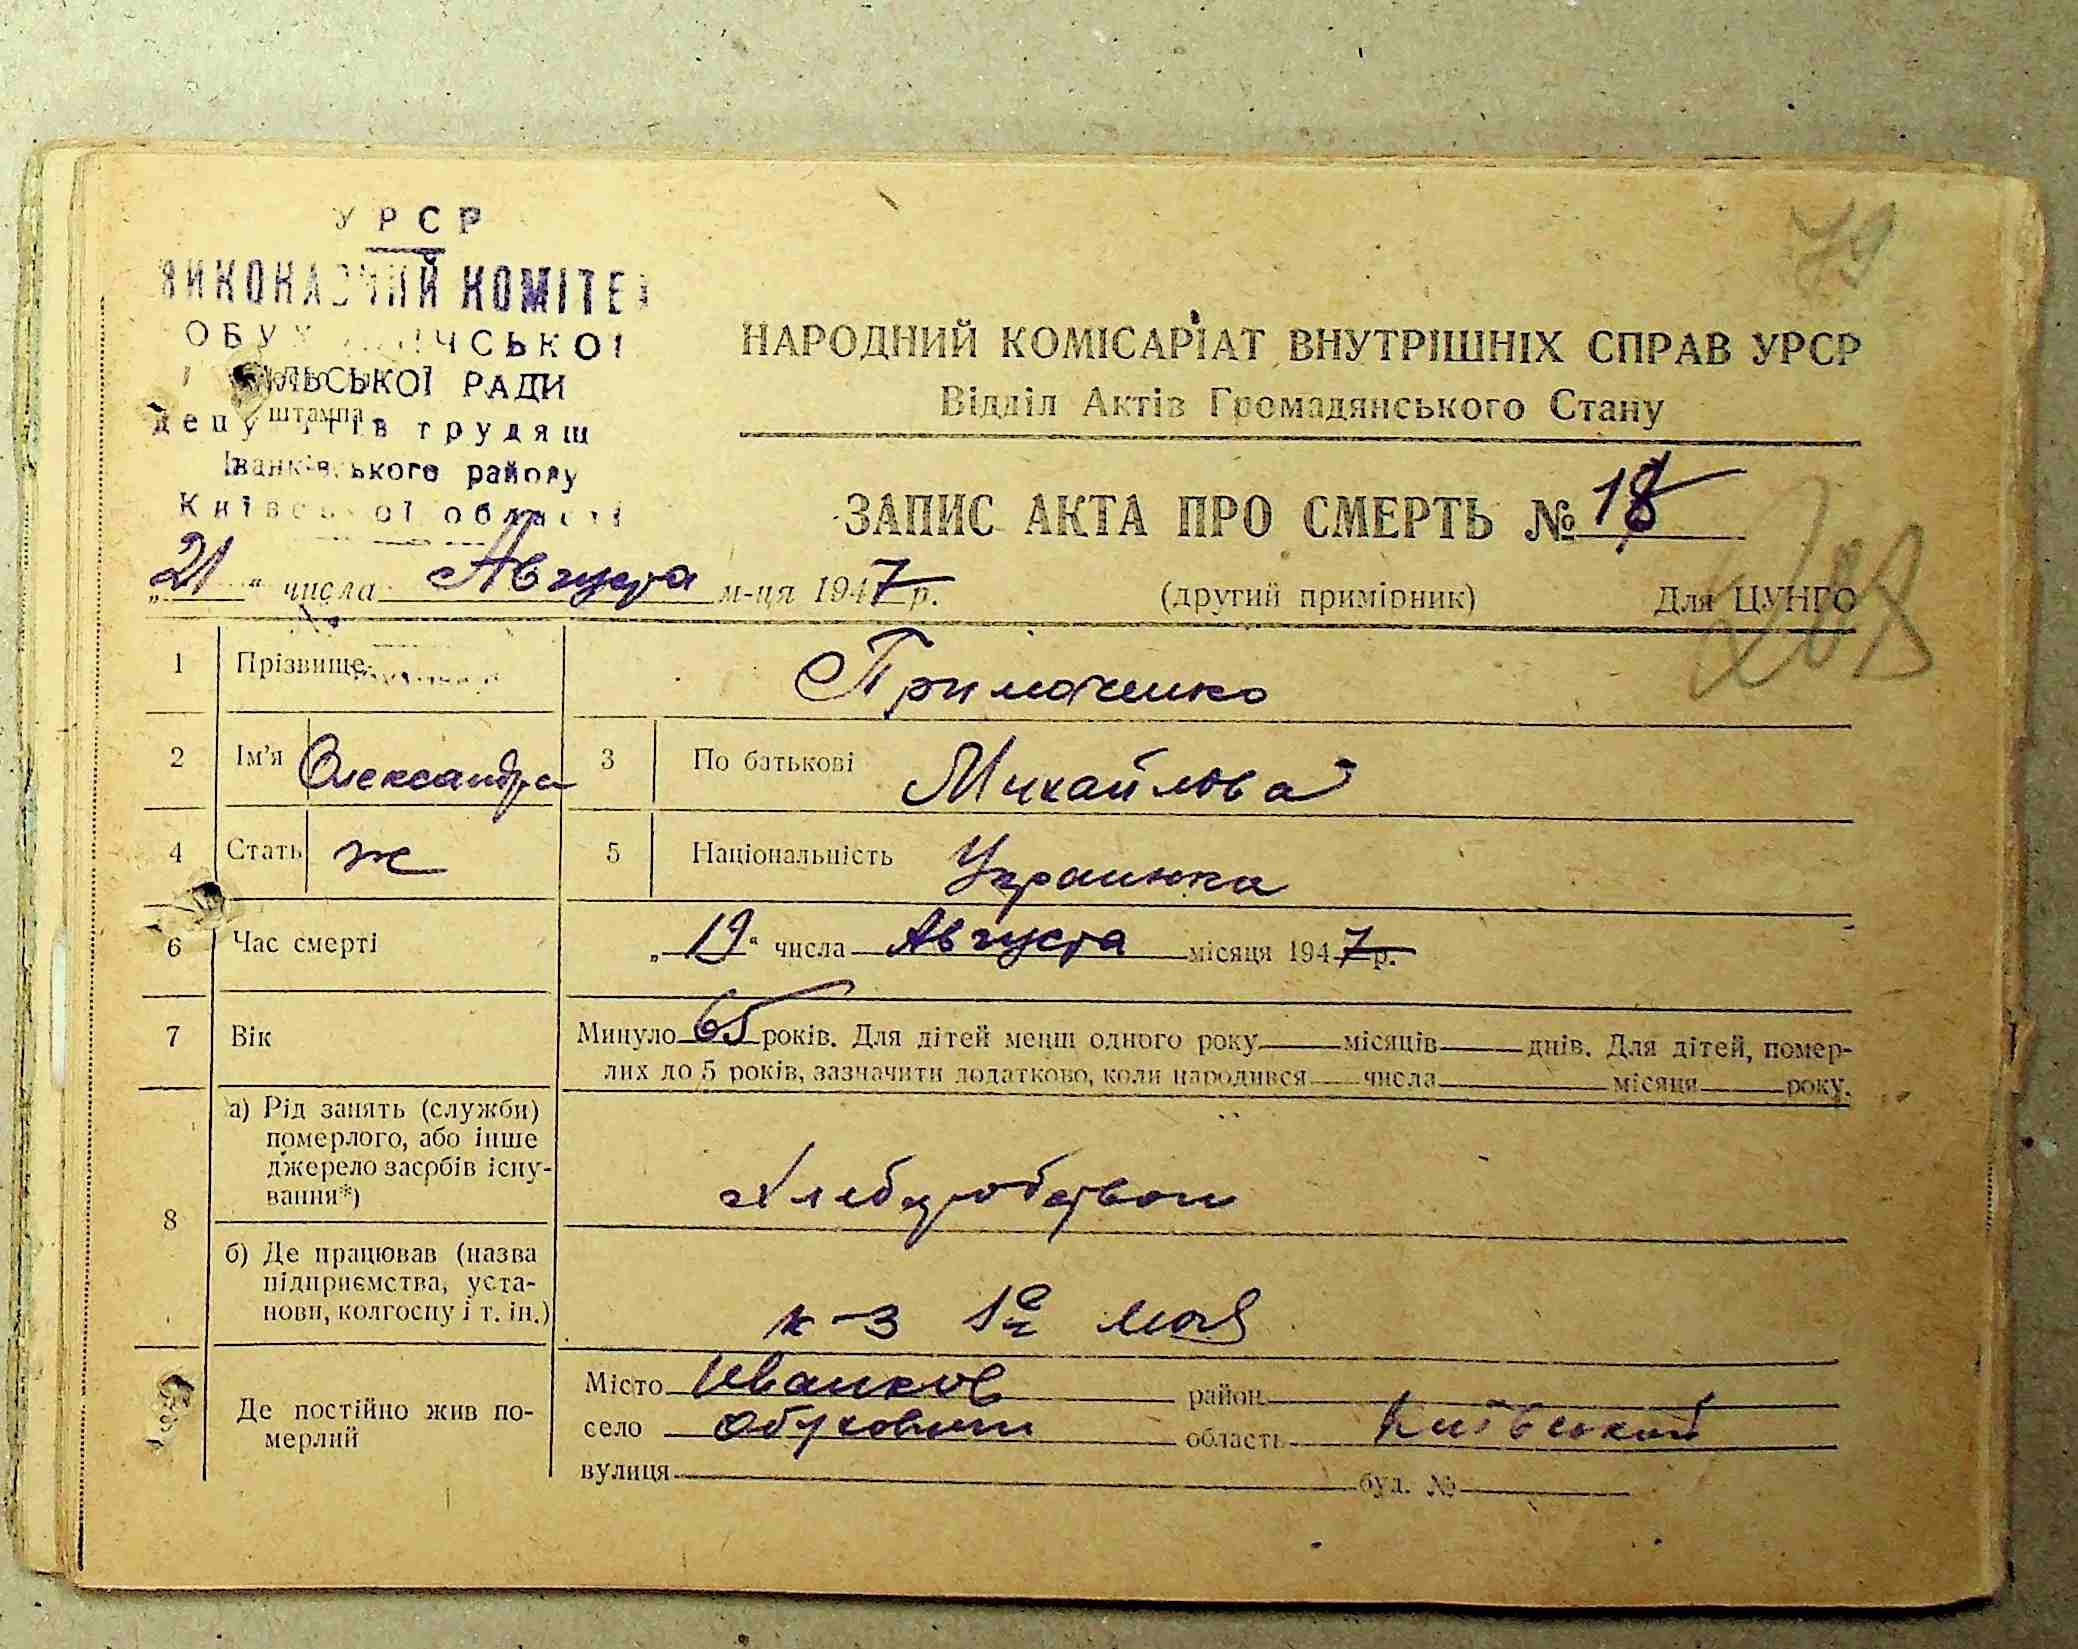 УРСР
ВИКОНАВЧИЙ КОМІТЕТ
ОБУХОВИЧСЬКОЇ
СІЛЬСЬКОЇ РАДИ
штампа
депутатів трудящ
Іванківського району
Київської області
79
НАРОДНИЙ КОМІСАРІАТ ВНУТРІШНІХ СПРАВ УРСР
Відділ Актів Громадянського Стану
ЗАПИС АКТА ПРО СМЕРТЬ № 18
„21“ числа Августа м-ця 1947 р.
(другий примірник) Для ЦУНГО
1 Прізвище Примаченко
2 Ім'я Олександра 3 По батькові Михайлова
4 Стать ж 5 Національність Украинка
6 Час смерті „19“ числа Августа місяця 1947 р.
7 Вік Минуло 65 років. Для дітей менш одного року місяців днів. Для дітей, помер-
лих до 5 років, зазначити додатково, коли народився числа місяця року.
8 а) Рід занять (служби)
померлого, або інше
джерело засобів існу-
вання*)
Хлебуробством
б) Де працював (назва
підприємства, уста-
нови, колгоспу і т. ін.)
к-з 1е мая
Де постійно жив по-
мерлий
Місто Иванков район
село Обуховичи область Київський
вулиця буд. №